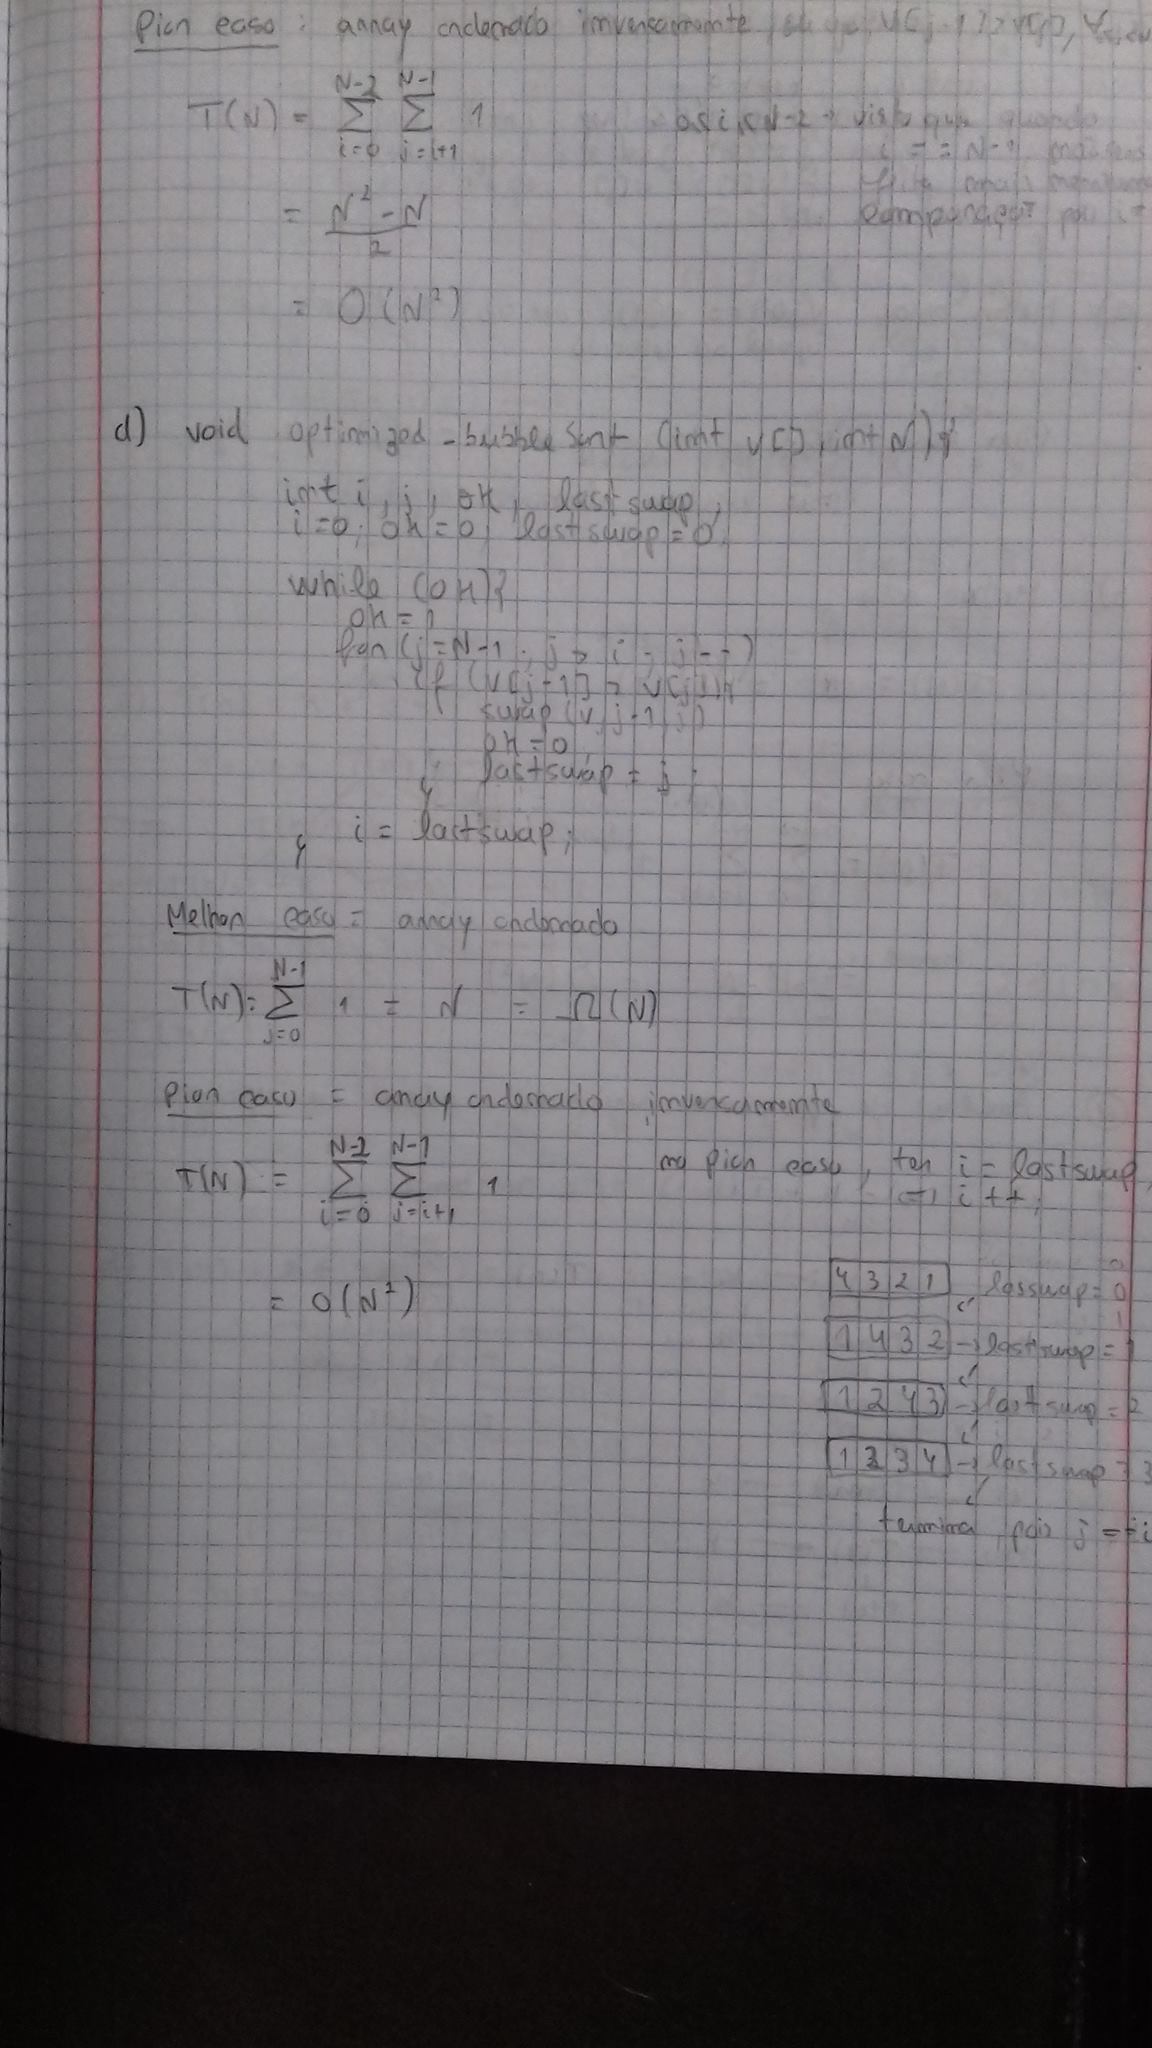 Pior caso : array ordenado inversamente
T(N) = N-2 Σ i=0 N-1 Σ j=i+1 1
0≤i≤N-2 → visto que quando
i == N-1, não
= N² - N / 2
comparações por
= O(N²)
d) void optimized-bubble Sort (int v[], int N) {
int i, j, ok, lastswap;
i=0; ok=0; lastswap=0;
while (ok) {
ok = 1
for (j=N-1; j > i; j--)
if (v[j-1] > v[j]) {
swap (v, j-1, j)
ok = 0;
lastswap = j;
}
i = lastswap;
}
Melhor caso = array ordenado
T(N) = N-1 Σ j=0 1 = N = Ω(N)
Pior caso = array ordenado inversamente
T(N) = N-2 Σ i=0 N-1 Σ j=i+1 1
no pior caso, ter i = lastswap,
⇔ i++;
= O(N²)
4 3 2 1 lasswap = 0
1 4 3 2 → lastswap = 1
1 2 4 3 → last swap = 2
1 2 3 4 → lastswap = 3
termina, pois j == i